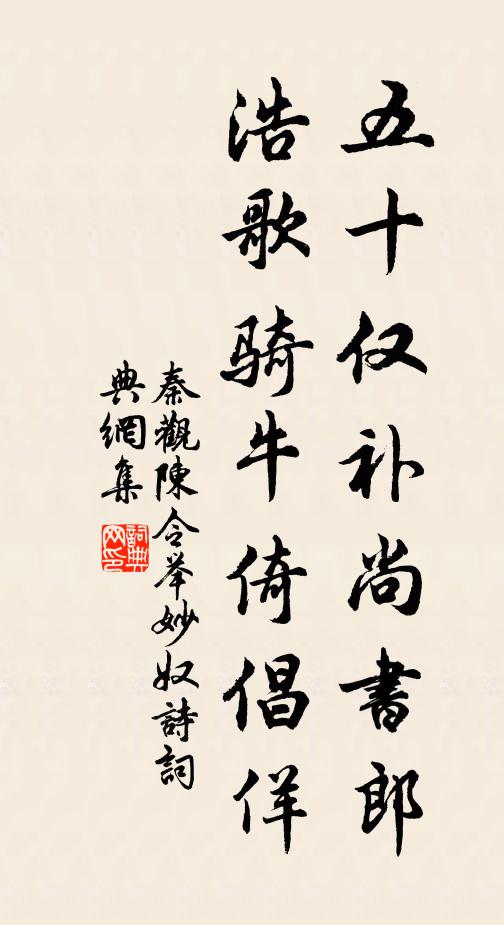 五十仅补尚書郎
浩歌骑牛倚倡佯
秦觀陳令举妙奴詩詞
典網集
詞典
网印